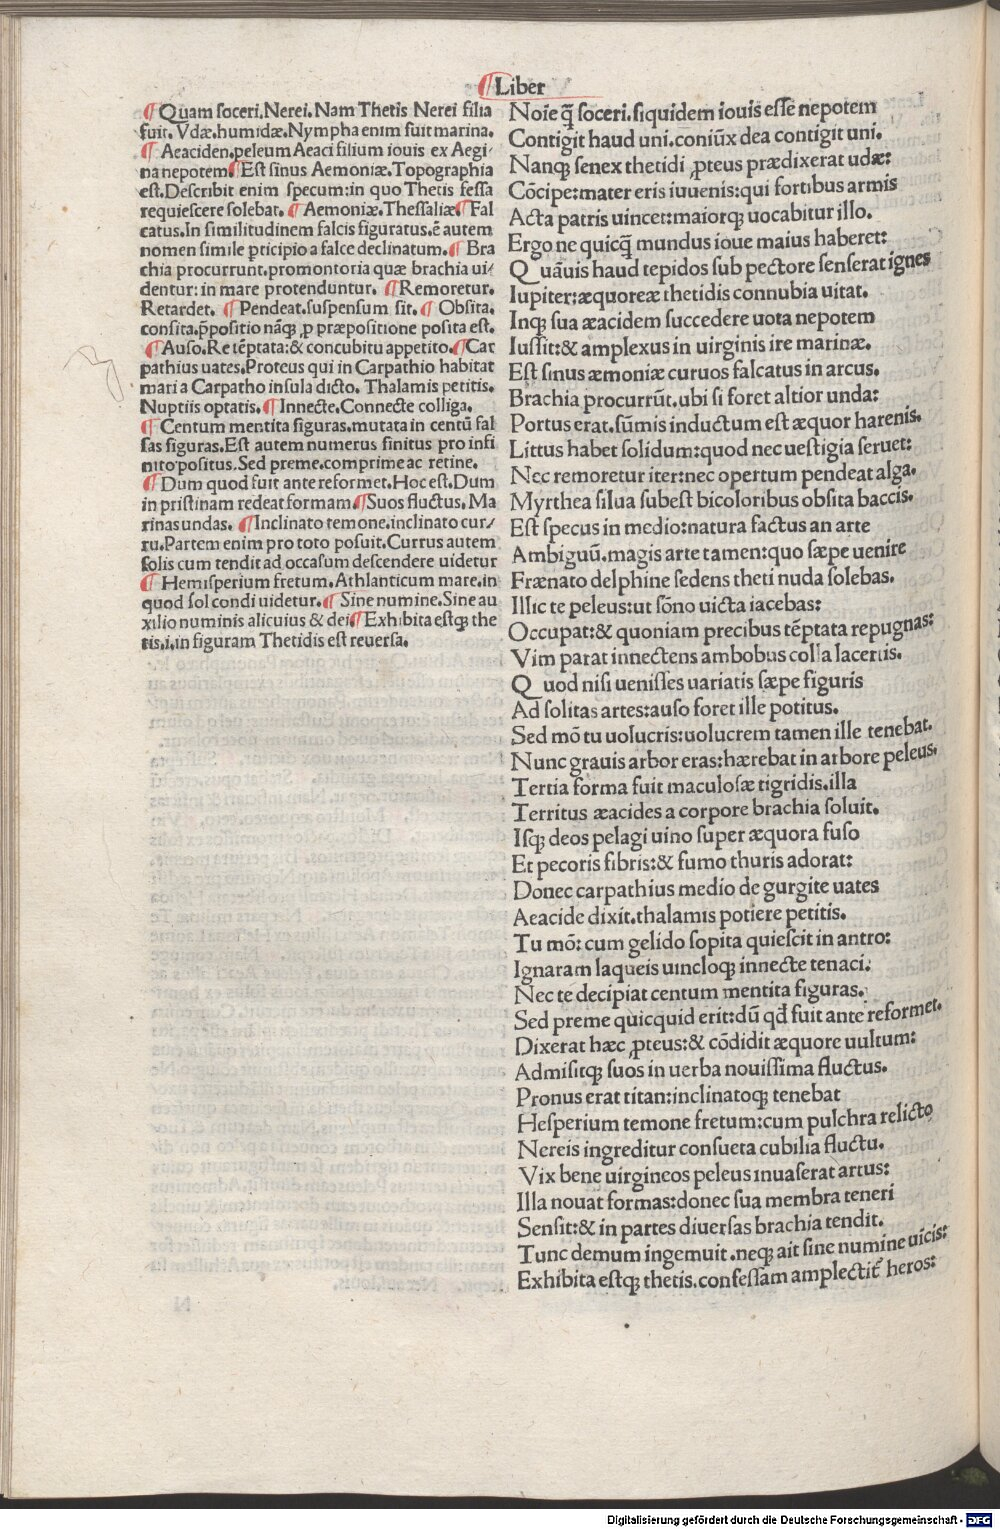 ¶Liber
¶ Quam soceri. Nerei. Nam Thetis Nerei filia
fuit. Vdæ. humidæ. Nympha enim fuit marina.
¶ Aeaciden. peleum Aeaci filium iouis ex Aegi
na nepotem¶ Est sinus Aemoniæ. Topographia
est. Describit enim specum: in quo Thetis fessa
requiescere solebat. ¶ Aemoniæ. Thessaliæ¶ Fal
catus. In similitudinem falcis figuratus. ē autem
nomen simile ꝑticipio a falce declinatum. ¶ Bra
chia procurrunt. promontoria quæ brachia ui/
dentur: in mare protenduntur. ¶ Remoretur.
Retardet. ¶ Pendeat. suspensum sit. ¶ Obsita.
consita. p̄positio nāq; ꝓ præpositione posita est.
¶ Auso. Re tēptata: & concubitu appetito. ¶ Car
pathius uates. Proteus qui in Carpathio habitat
mari a Carpatho insula dicto. Thalamis petitis.
Nuptiis optatis. ¶ Innecte. Connecte colliga.
¶ Centum mentita figuras. mutata in centū fal
sas figuras. Est autem numerus finitus pro infi
nito positus. Sed preme. comprime ac retine.
¶ Dum quod fuit ante reformet. Hoc est. Dum
in pristinam redeat formam. ¶ Suos fluctus. Ma
rinas undas. ¶ Inclinato temone. inclinato cur/
ru. Partem enim pro toto posuit. Currus autem
solis cum tendit ad occasum descendere uidetur
¶ Hemisperium fretum. Athlanticum mare. in
quod sol condi uidetur. ¶ Sine numine. Sine au
xilio numinis alicuius & dei¶ Exhibita estq; the
tis. i. in figuram Thetidis est reuersa.
Noīe q̄ soceri. siquidem iouis esse nepotem
Contigit haud uni. coniūx dea contigit uni.
Nanq; senex thetidi ꝓteus prædixerat udæ:
Cōcipe: mater eris iuuenis: qui fortibus armis
Acta patris uincet: maiorq; uocabitur illo.
Ergo ne quicq̄ mundus ioue maius haberet:
Q uāuis haud tepidos sub pectore senserat ignes
Iupiter: æquoreæ thetidis connubia uitat.
Inq; sua æacidem succedere uota nepotem
Iussit: & amplexus in uirginis ire marinæ.
Est sinus æmoniæ curuos falcatus in arcus.
Brachia procurrūt. ubi si foret altior unda:
Portus erat. sūmis inductum est æquor harenis.
Littus habet solidum: quod nec uestigia seruet:
Nec remoretur iter: nec opertum pendeat alga.
Myrthea silua subest bicoloribus obsita baccis.
Est specus in medio: natura factus an arte
Ambiguū. magis arte tamen: quo sæpe uenire
Frænato delphine sedens theti nuda solebas.
Illic te peleus: ut sōno uicta iacebas:
Occupat: & quoniam precibus tēptata repugnas:
Vim parat innectens ambobus colla lacertis.
Q uod nisi uenisses uariatis sæpe figuris
Ad solitas artes: auso foret ille potitus.
Sed mō tu uolucris: uolucrem tamen ille tenebat.
Nunc grauis arbor eras: hærebat in arbore peleus.
Tertia forma fuit maculosæ tigridis. illa
Territus æacides a corpore brachia soluit.
Isq; deos pelagi uino super æquora fuso
Et pecoris fibris: & fumo thuris adorat:
Donec carpathius medio de gurgite uates
Aeacide dixit. thalamis potiere petitis.
Tu mō: cum gelido sopita quiescit in antro:
Ignaram laqueis uincloq; innecte tenaci:
Nec te decipiat centum mentita figuras.
Sed preme quicquid erit: dū qd̄ fuit ante reformet.
Dixerat hæc ꝓteus: & cōdidit æquore uultum:
Admisitq; suos in uerba nouissima fluctus.
Pronus erat titan: inclinatoq; tenebat
Hesperium temone fretum: cum pulchra relicto
Nereis ingreditur consueta cubilia fluctu.
Vix bene uirgineos peleus inuaserat artus:
Illa nouat formas: donec sua membra teneri
Sensit: & in partes diuersas brachia tendit.
Tunc demum ingemuit. neq; ait sine numine uicis:
Exhibita estq; thetis. confessam amplectit̄ heros:
Digitalisierung gefördert durch die Deutsche Forschungsgemeinschaft - DFG